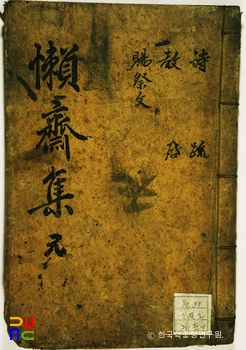 詩 疏
敎 啓
賜祭文
懶齋集 元
© 한국학중앙연구원